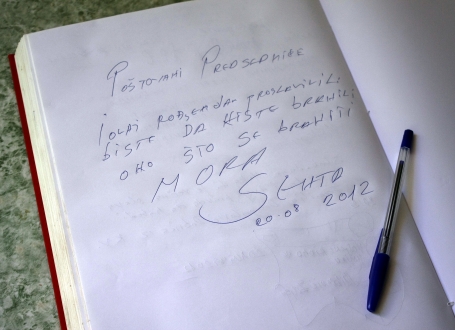 Poštovani Predsedniče
i ovaj rođendan proslavili
biste da niste branili
ono što se braniti
MORA
20.08 2012